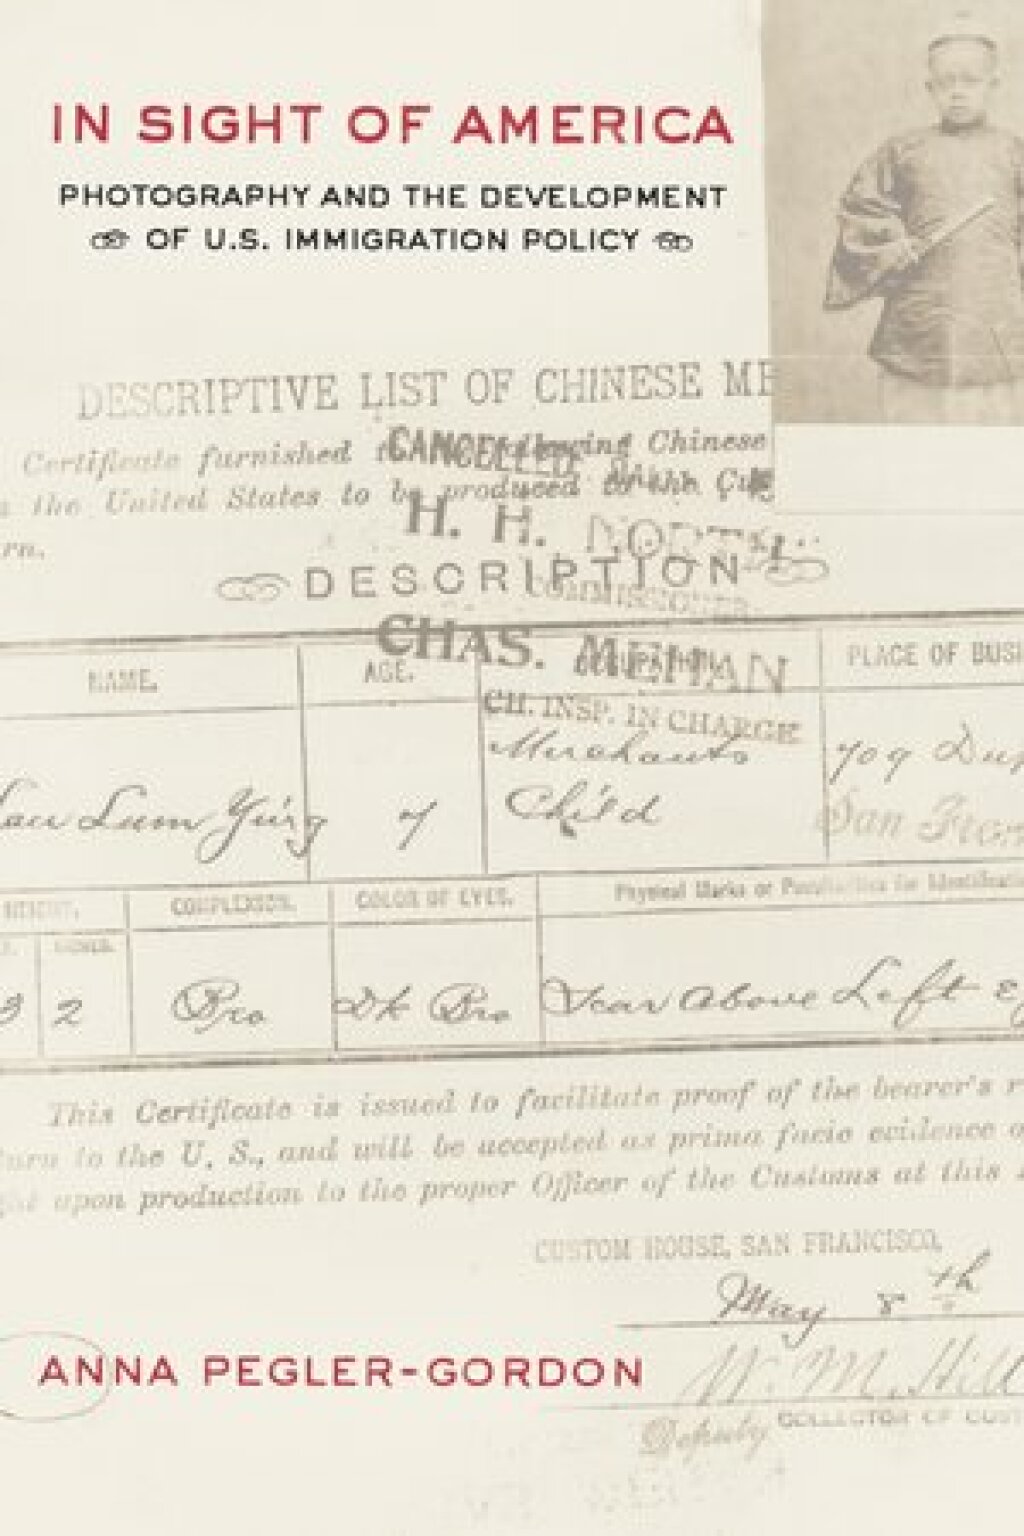 IN SIGHT OF AMERICA
PHOTOGRAPHY AND THE DEVELOPMENT
OF U.S. IMMIGRATION POLICY
DESCRIPTIVE LIST OF CHINESE
Certificate furnished Chinese
the United States to be produced
rn.
CANCELLED
H. H. NORTH
COMMISSIONER
DESCRIPTION
CHAS. MEHAN
CH. INSP. IN CHARGE
NAME.
AGE.
OCCUPATION
PLACE OF BUSI
Lum Ying
7
Merchants
Child
709 Dup
San Fran
HEIGHT.
COMPLEXION.
COLOR OF EYES.
Physical Marks or Peculiarities for Identificatio
3
2
Bro
Dk Bro
Scar Above Left Ey
This Certificate is issued to facilitate proof of the bearer's r
turn to the U. S., and will be accepted as prima facie evidence o
upon production to the proper Officer of the Customs at this
CUSTOM HOUSE, SAN FRANCISCO,
May 8th
ANNA PEGLER-GORDON
Deputy COLLECTOR OF CUST